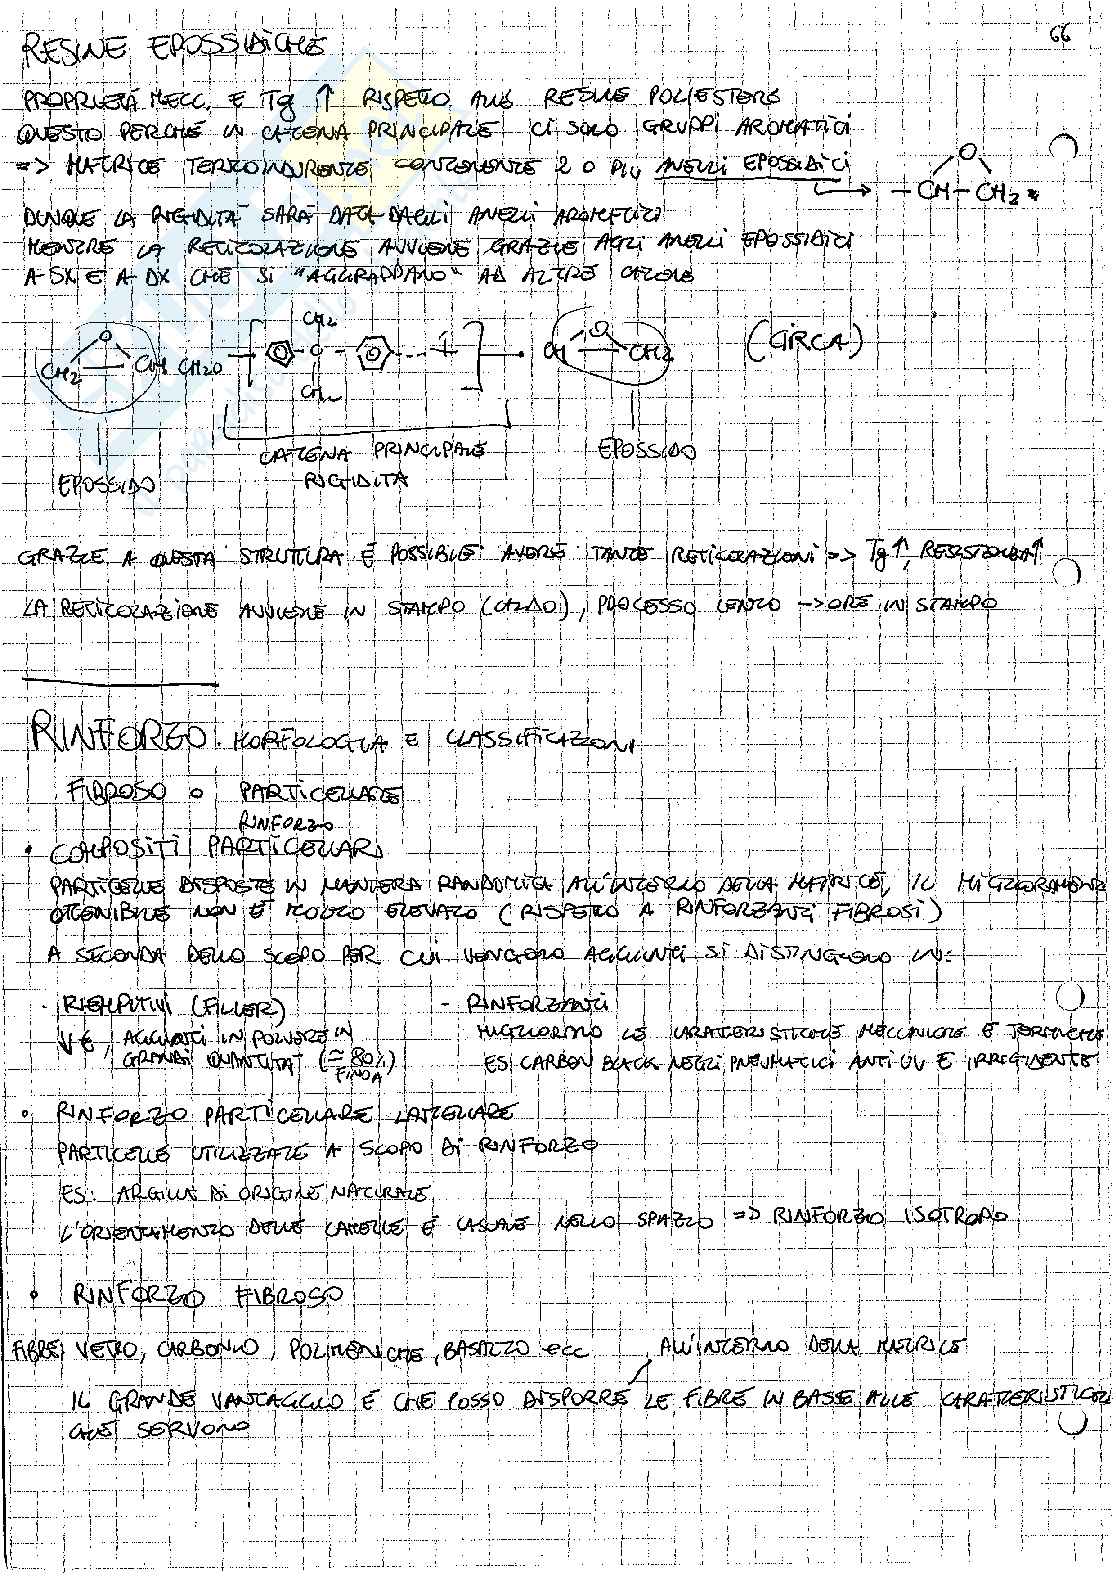 66
RESINE EPOSSIDICHE
PROPRIETÀ MECC. E Tg ↑ RISPETTO ALLE RESINE POLIESTERE
QUESTO PERCHÉ IN CATENA PRINCIPALE CI SOLO GRUPPI AROMATICI
=> MATRICE TERMOINDURENTE CONTENENTE 2 O PIÙ ANELLI EPOSSIDICI
O
- CH - CH2 -
DUNQUE LA RIGIDITÀ SARÀ DATA DAGLI ANELLI AROMATICI
MENTRE LA RETICOLAZIONE AVVIENE GRAZIE AGLI ANELLI EPOSSIDICI
A SX E A DX CHE SI "AGGRAPPANO" AD ALTRE CATENE
CH2 CH CH2O
CH2
C
CH2
CH CH2
(CIRCA)
CATENA PRINCIPALE
RIGIDITÀ
EPOSSIDO
EPOSSIDO
GRAZIE A QUESTA STRUTTURA È POSSIBILE AVERE TANTE RETICOLAZIONI => Tg ↑, RESISTENZA ↑
LA RETICOLAZIONE AVVIENE IN STAMPO (CALDO), PROCESSO LENTO -> ORE IN STAMPO
RINFORZO. MORFOLOGIA E CLASSIFICAZIONI
FIBROSO O PARTICELLARE
RINFORZO
• COMPOSITI PARTICELLARI
PARTICELLE DISPOSTE IN MANIERA RANDOMICA ALL'INTERNO DELLA MATRICE, IL MIGLIORAMENTO
OTTENIBILE NON È MOLTO ELEVATO (RISPETTO A RINFORZANTI FIBROSI)
A SECONDA DELLO SCOPO PER CUI VENGONO AGGIUNTI SI DISTINGUONO IN:
- RIEMPITIVI (FILLER)
V€, AGGIUNTI IN POLVERE IN
GRANDI QUANTITÀ (≃ 80%)
FINO A
- RINFORZANTI
MIGLIORANO LE CARATTERISTICHE MECCANICHE E TERMICHE
ES: CARBON BLACK NEGLI PNEUMATICI ANTI UV E IRRIGIDENTE
• RINFORZO PARTICELLARE LAMELLARE
PARTICELLE UTILIZZATE A SCOPO DI RINFORZO
ES: ARGILLA DI ORIGINE NATURALE
L'ORIENTAMENTO DELLE LAMELLE È CASUALE NELLO SPAZIO => RINFORZO ISOTROPO
• RINFORZO FIBROSO
FIBRE VETRO, CARBONIO, POLIMERICHE, BASALTO ecc
ALL'INTERNO DELLA MATRICE
IL GRANDE VANTAGGIO È CHE POSSO DISPORRE LE FIBRE IN BASE ALLE CARATTERISTICHE
CHE SERVONO